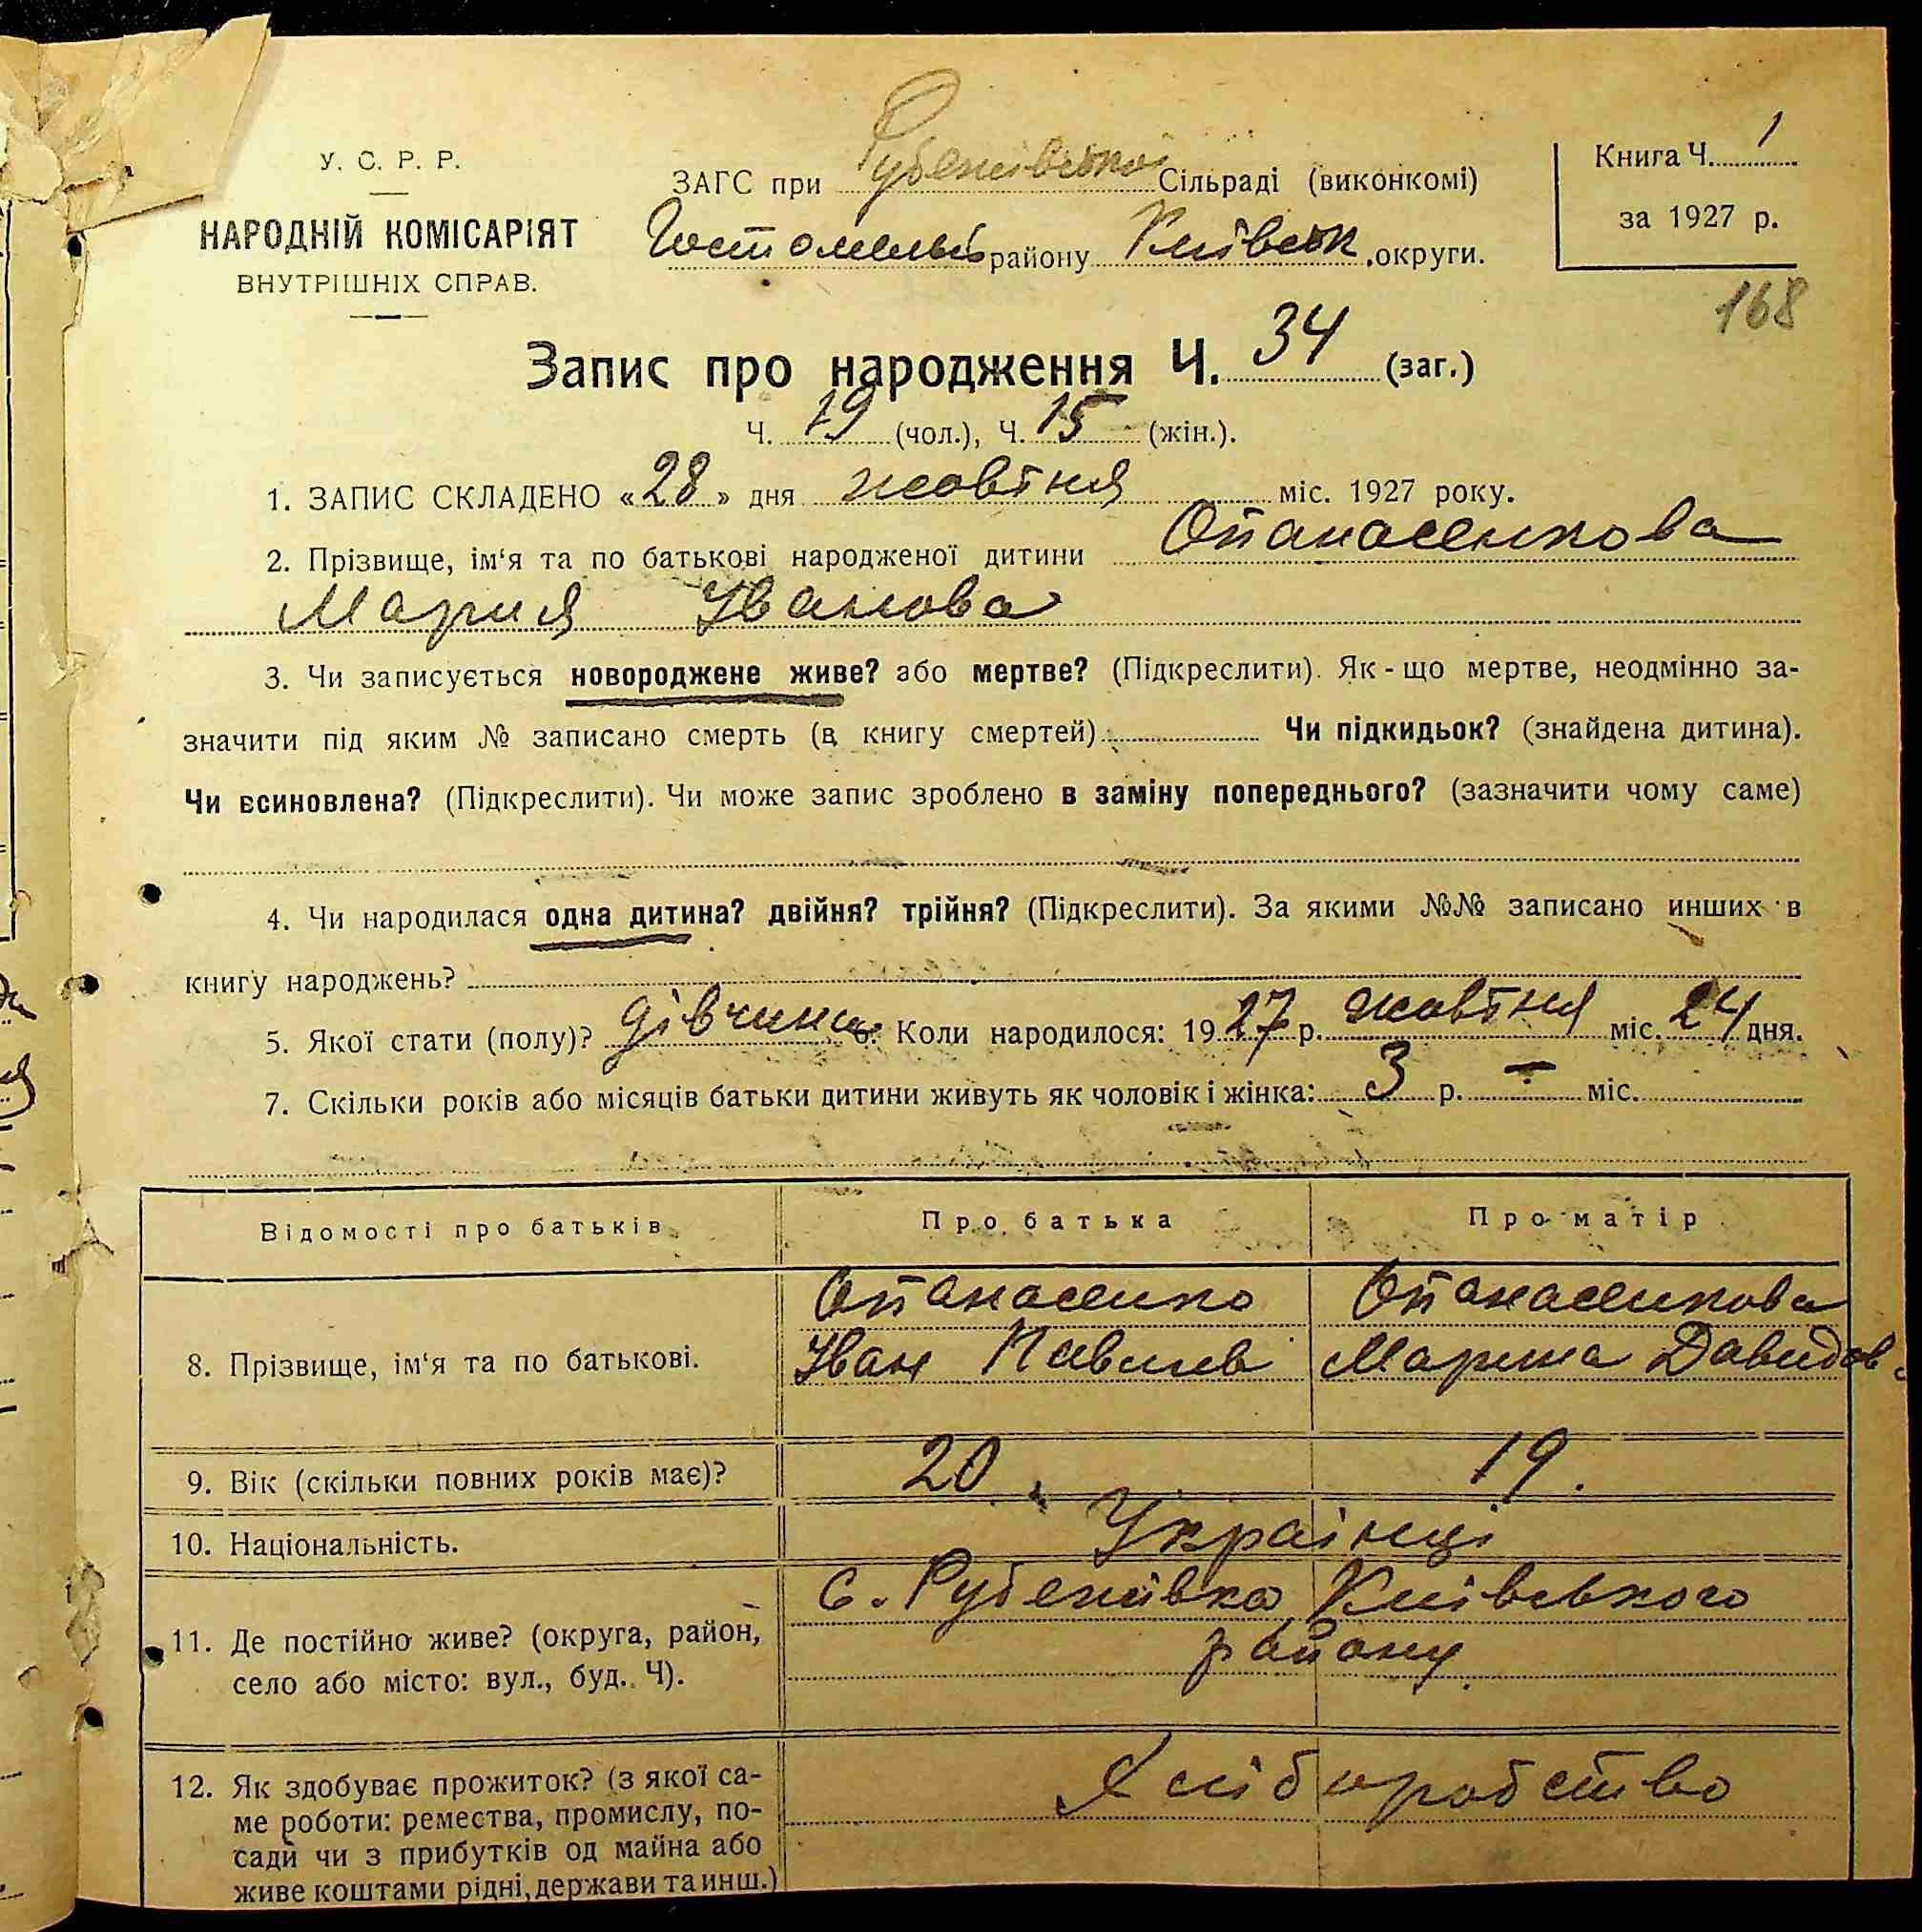 У. С. Р. Р.
НАРОДНІЙ КОМІСАРІЯТ
ВНУТРІШНІХ СПРАВ.
ЗАГС при Рубежівській Сільраді (виконкомі)
Гостомельськ району Київськ. округи.
Книга Ч. 1
за 1927 р.
168
Запис про народження Ч. 34 (заг.)
Ч. 19 (чол.), Ч. 15 (жін.).
1. ЗАПИС СКЛАДЕНО «28» дня жовтня міс. 1927 року.
2. Прізвище, ім‘я та по батькові народженої дитини Опанасенкова
Мария Іванова
3. Чи записується новороджене живе? або мертве? (Підкреслити). Як-що мертве, неодмінно за-
значити під яким № записано смерть (в книгу смертей) Чи підкидьок? (знайдена дитина).
Чи всиновлена? (Підкреслити). Чи може запис зроблено в заміну попереднього? (зазначити чому саме)
4. Чи народилася одна дитина? двійня? трійня? (Підкреслити). За якими №№ записано инших в
книгу народжень?
5. Якої стати (полу)? дівчина 6. Коли народилося: 1927 р. жовтня міс. 24 дня.
7. Скільки років або місяців батьки дитини живуть як чоловік і жінка: 3 р. — міс.
Відомості про батьків
Про батька
Про матір
8. Прізвище, ім‘я та по батькові.
Опанасенко
Іван Павлів
Опанасенкова
Марина Давидов
9. Вік (скільки повних років має)?
20
19.
10. Національність.
Українці
11. Де постійно живе? (округа, район,
село або місто: вул., буд. Ч).
С. Рубежівка Київського
району
12. Як здобуває прожиток? (з якої са-
ме роботи: ремества, промислу, по-
сади чи з прибутків од майна або
живе коштами рідні, держави та инш.)
Хліборобство